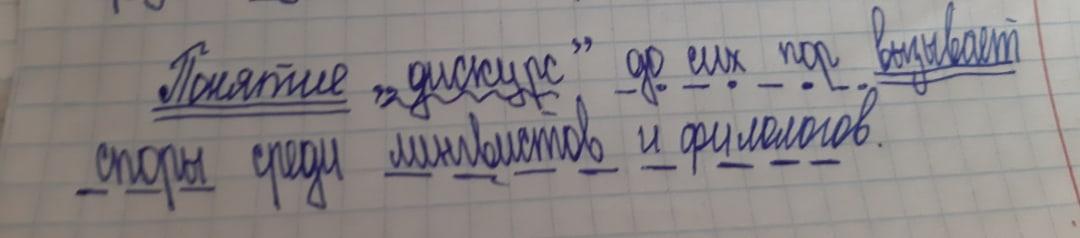 Понятие „дискурс” до сих пор вызывает
споры среди лингвистов и филологов.